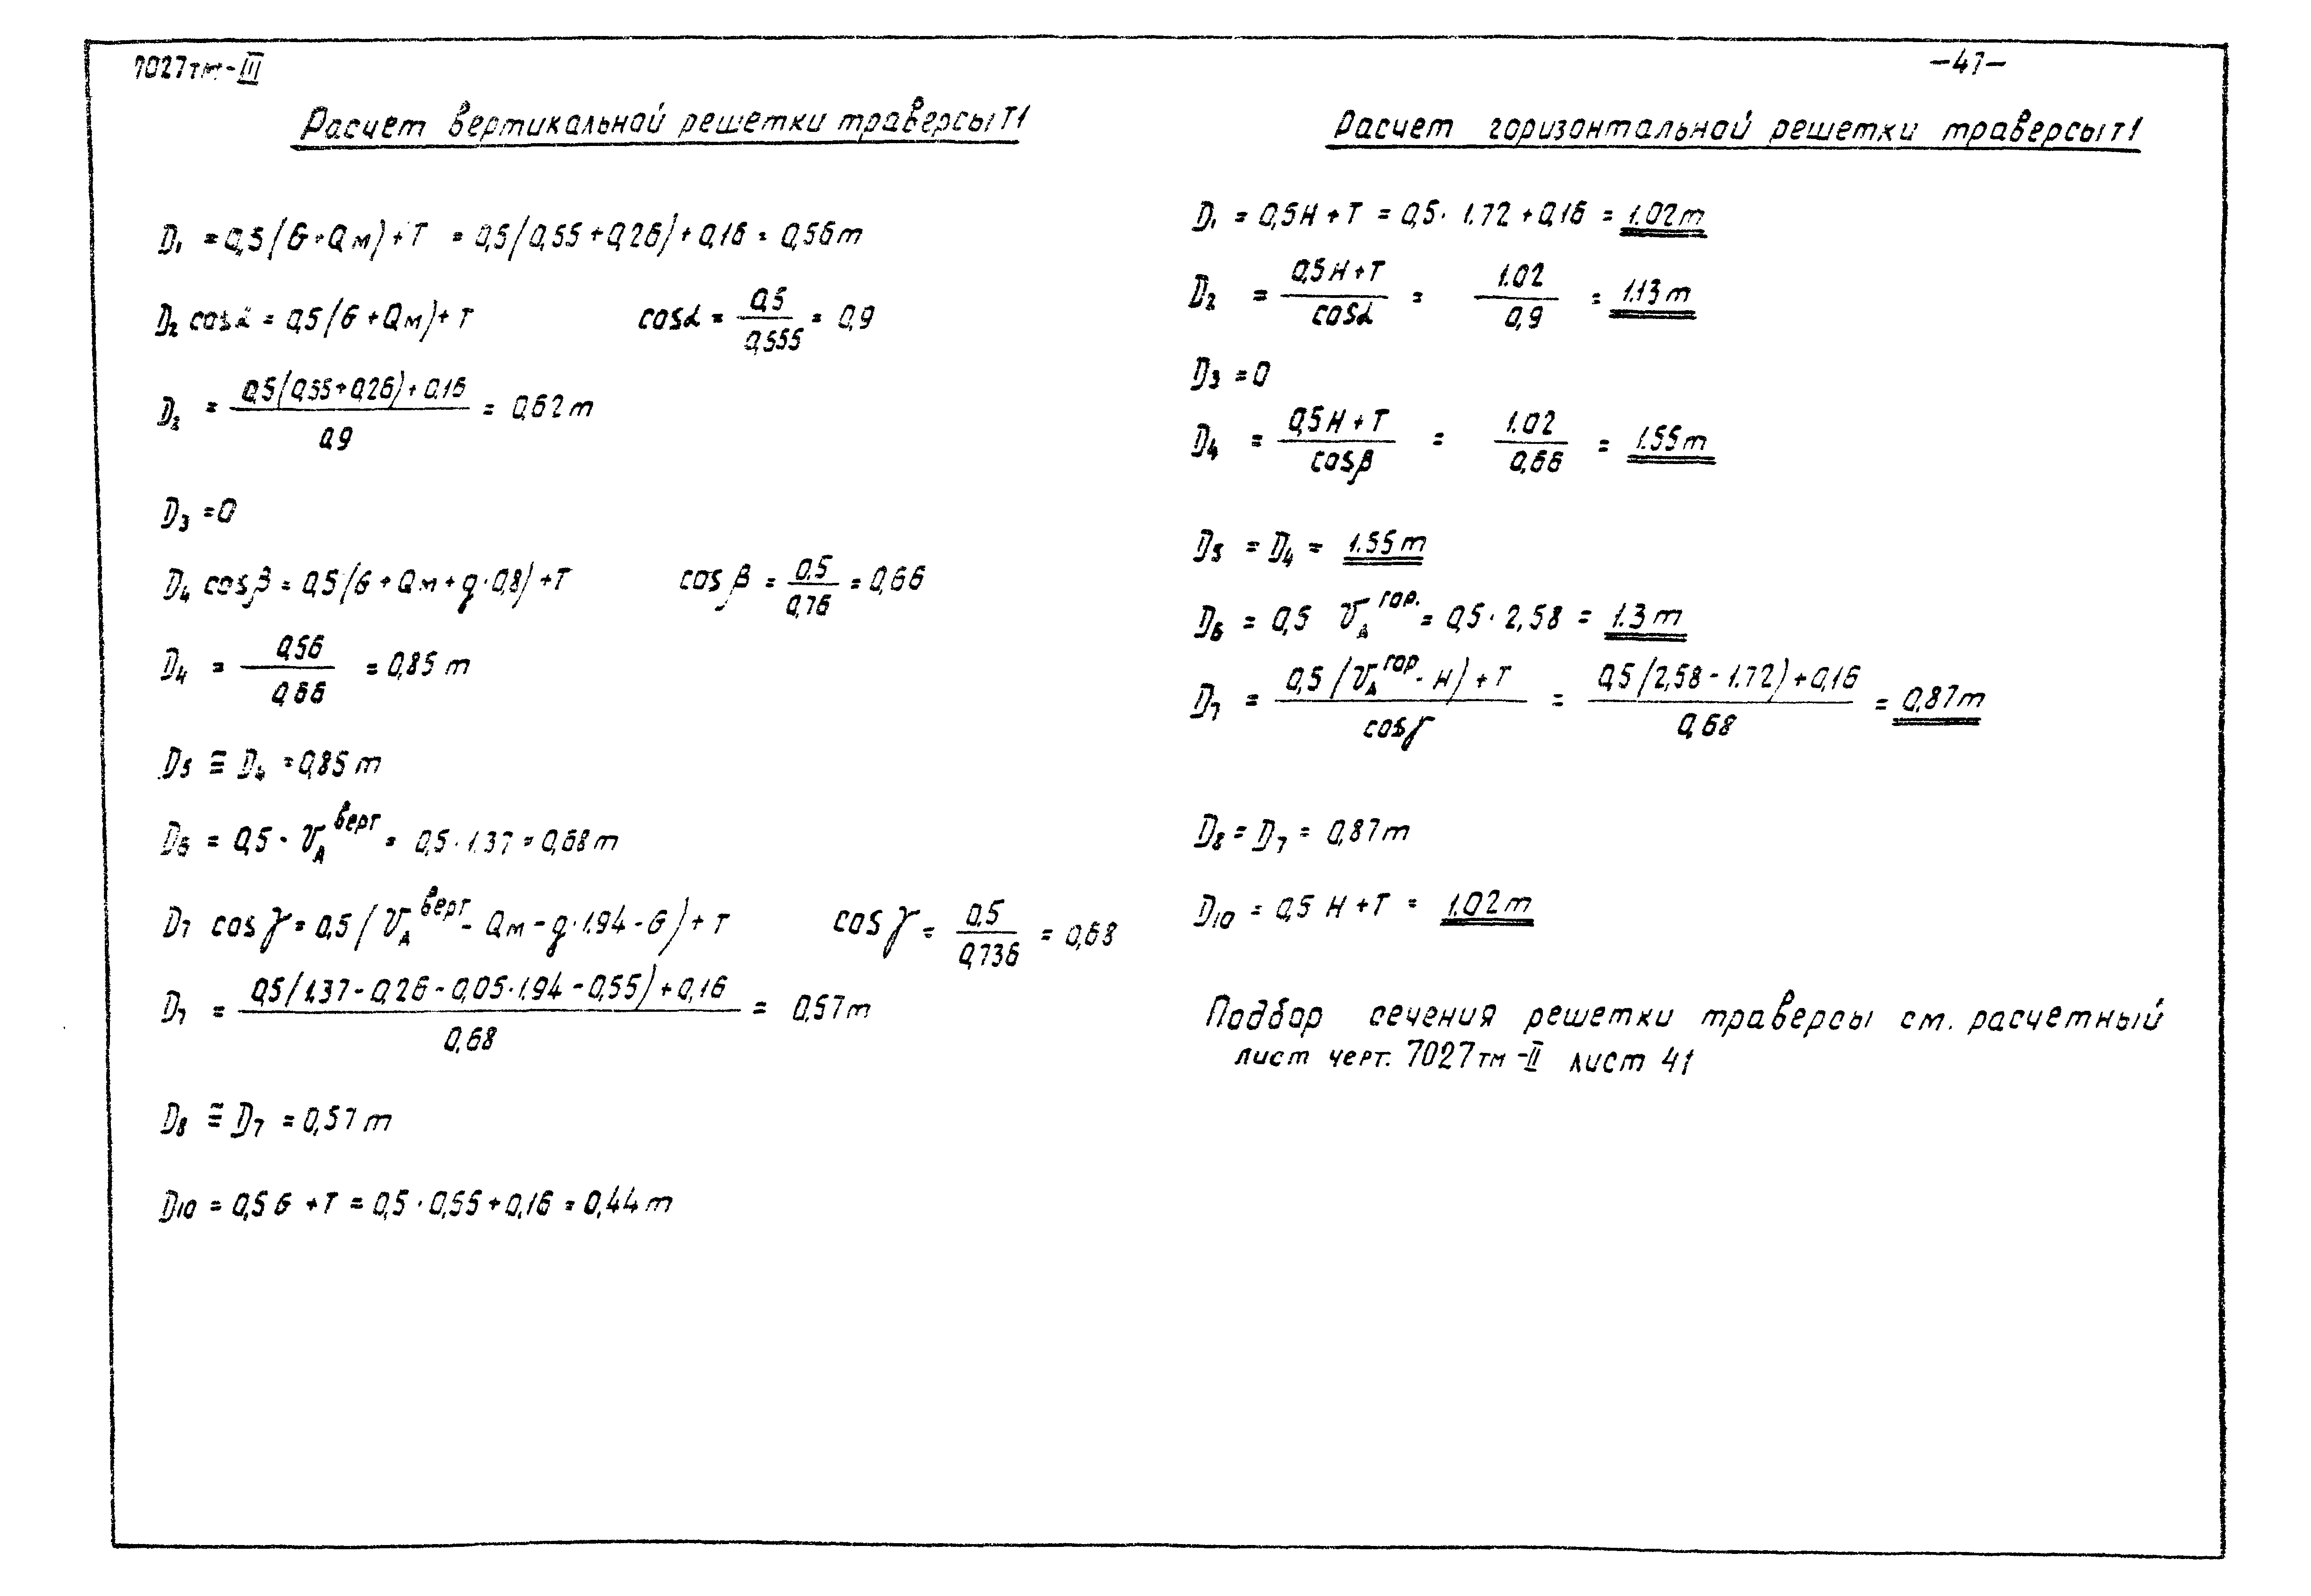 7027тм-III
-47-
Расчет вертикальной решетки траверсы Т1
D₁ = 0,5(G+Qм)+T = 0,5(0,55+0,26)+0,16 = 0,56т
D₂ cosα = 0,5(G+Qм)+T cosα = 0,5/0,555 = 0,9
D₂ = (0,5(0,55+0,26)+0,16)/0,9 = 0,62т
D₃ = 0
D₄ cosβ = 0,5(G+Qм+q·0,8)+T cosβ = 0,5/0,76 = 0,66
D₄ = 0,56/0,66 = 0,85 т
D₅ ≅ D₄ = 0,85 т
D₆ = 0,5·V_A^верт = 0,5·1.37 = 0,68т
D₇ cosγ = 0,5(V_A^верт - Qм - q·1.94 - G)+T cosγ = 0,5/0,736 = 0,68
D₇ = (0,5(1.37-0,26-0,05·1.94-0,55)+0,16)/0,68 = 0,57т
D₈ ≅ D₇ = 0,57т
D₁₀ = 0,5G+T = 0,5·0,55+0,16 = 0,44т
Расчет горизонтальной решетки траверсы Т1
D₁ = 0,5H+T = 0,5·1.72+0,16 = 1.02т
D₂ = (0,5H+T)/cosα = 1.02/0,9 = 1.13т
D₃ = 0
D₄ = (0,5H+T)/cosβ = 1.02/0,66 = 1.55т
D₅ = D₄ = 1.55т
D₆ = 0,5 V_A^гор. = 0,5·2,58 = 1.3т
D₇ = (0,5(V_A^гор - H)+T)/cosγ = (0,5(2,58-1.72)+0,16)/0,68 = 0,87т
D₈ = D₇ = 0,87т
D₁₀ = 0,5 H+T = 1.02т
Подбор сечения решетки траверсы см. расчетный
лист черт. 7027тм-II лист 41